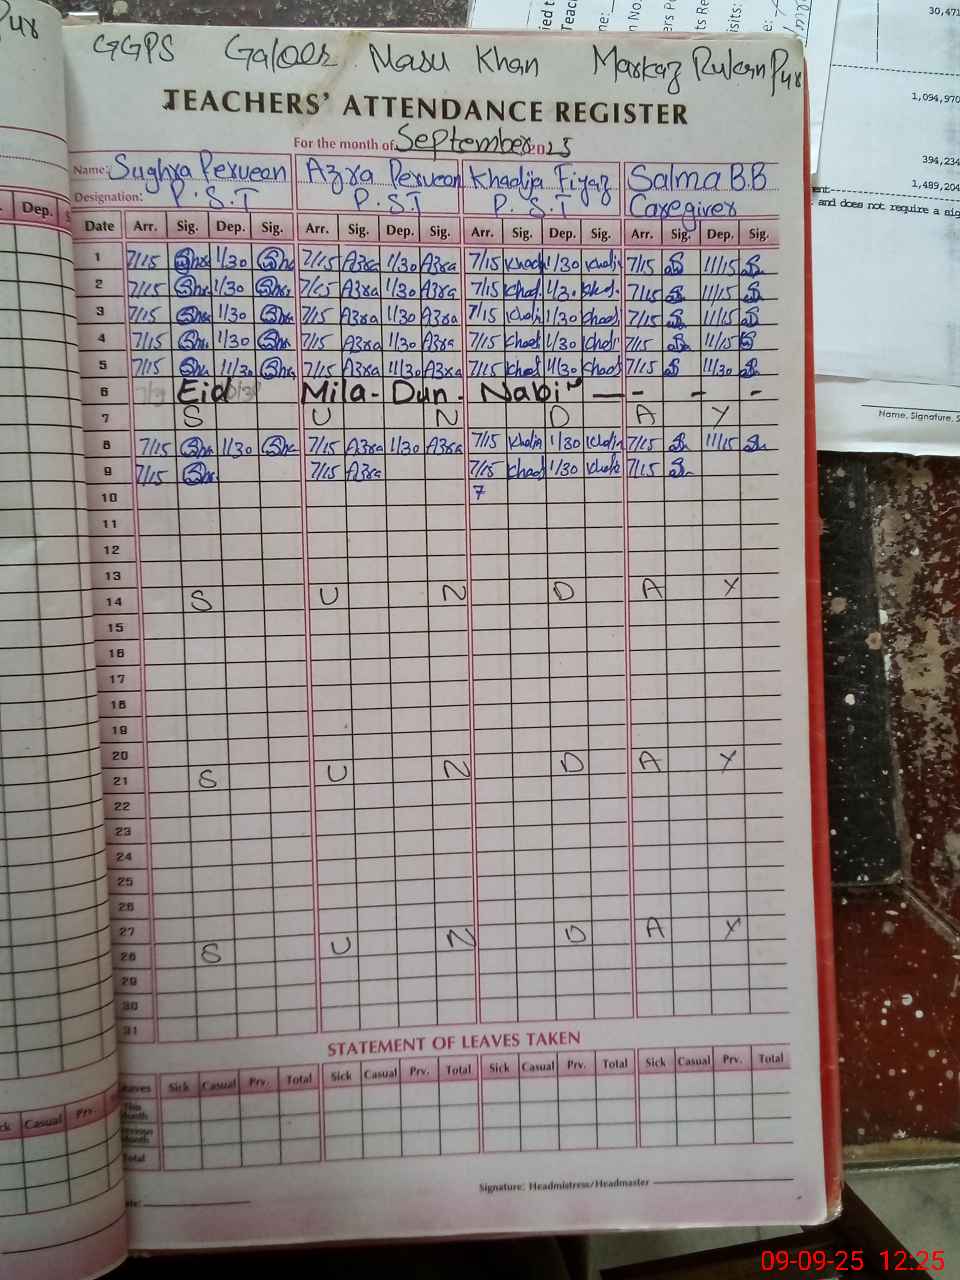 GGPS Galoer Masu Khan Markaz Rukan Pur
TEACHERS' ATTENDANCE REGISTER
For the month of September 2025
Name: Sughra Perveen Azra Perveen Khadija Fiyaz Salma B.B
Designation: P.S.T P.S.T P.S.T Caregiver
Date Arr. Sig. Dep. Sig. Arr. Sig. Dep. Sig. Arr. Sig. Dep. Sig. Arr. Sig. Dep. Sig.
1 7/15 1/30 7/15 Azra 1/30 Azra 7/15 Khadi 1/30 Khadij 7/15 11/15
2 7/15 1/30 7/15 Azra 1/30 Azra 7/15 Khad. 1/30 Khad. 7/15 11/15
3 7/15 1/30 7/15 Azra 1/30 Azra 7/15 Khadi 1/30 Khadi 7/15 11/15
4 7/15 1/30 7/15 Azra 1/30 Azra 7/15 Khad 1/30 Khadi 7/15 11/15
5 7/15 11/30 7/15 Azra 11/30 Azra 7/15 Khad 11/30 Khad 7/15 11/30
6 Eid Mila - Dun - Nabi — - - -
7 S U N D A Y
8 7/15 1/30 7/15 Azra 1/30 Azra 7/15 Khadija 1/30 Khadija 7/15 11/15
9 7/15 7/15 Azra 7/15 Khad 1/30 Khadi 7/15
10 7
11
12
13
14 S U N D A Y
15
16
17
18
19
20
21 S U N D A Y
22
23
24
25
26
27
28 S U N D A Y
29
30
31
STATEMENT OF LEAVES TAKEN
Leaves Sick Casual Prv. Total Sick Casual Prv. Total Sick Casual Prv. Total Sick Casual Prv. Total
This Month
Previous Month
Total
Signature: Headmistress/Headmaster
Dep.
Casual Prv.
30,471
1,094,970
394,234
1,489,204
and does not require a sig
Name, Signature, S
09-09-25 12:25